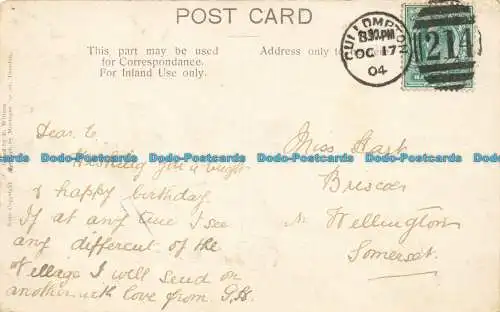 POST CARD
This part may be used
for Correspondance.
For Inland Use only.
Address only to
CULLOMPTON
8.30.PM
OC 17
04
214
Dear E.
Wishing you a
& happy birthday
If at any time I see
any different of the
village I will send on
another with love from G.H.
Miss Hart
Briscoe
Nr Wellington
Somerset.
Dodo-Postcards Dodo-Postcards Dodo-Postcards Dodo-Postcards Dodo-Postcards
Dodo-Postcards Dodo-Postcards Dodo-Postcards Dodo-Postcards Dodo-Postcards